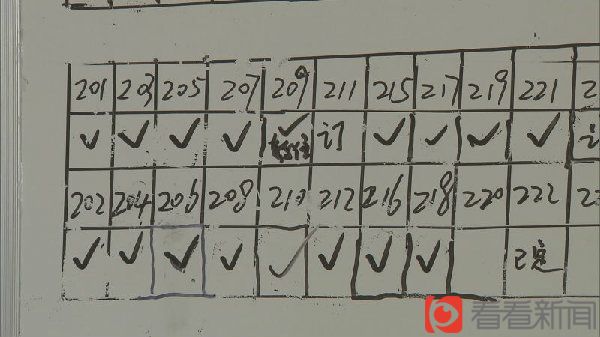 201 203 205 207 209 211 215 217 219 221 2
✓ ✓ ✓ ✓ ✓ 订 ✓ ✓ ✓ ✓
202 204 206 208 210 212 216 218 220 222 2
✓ ✓ ✓ ✓ ✓ ✓ ✓ ✓ 已定
看看新闻